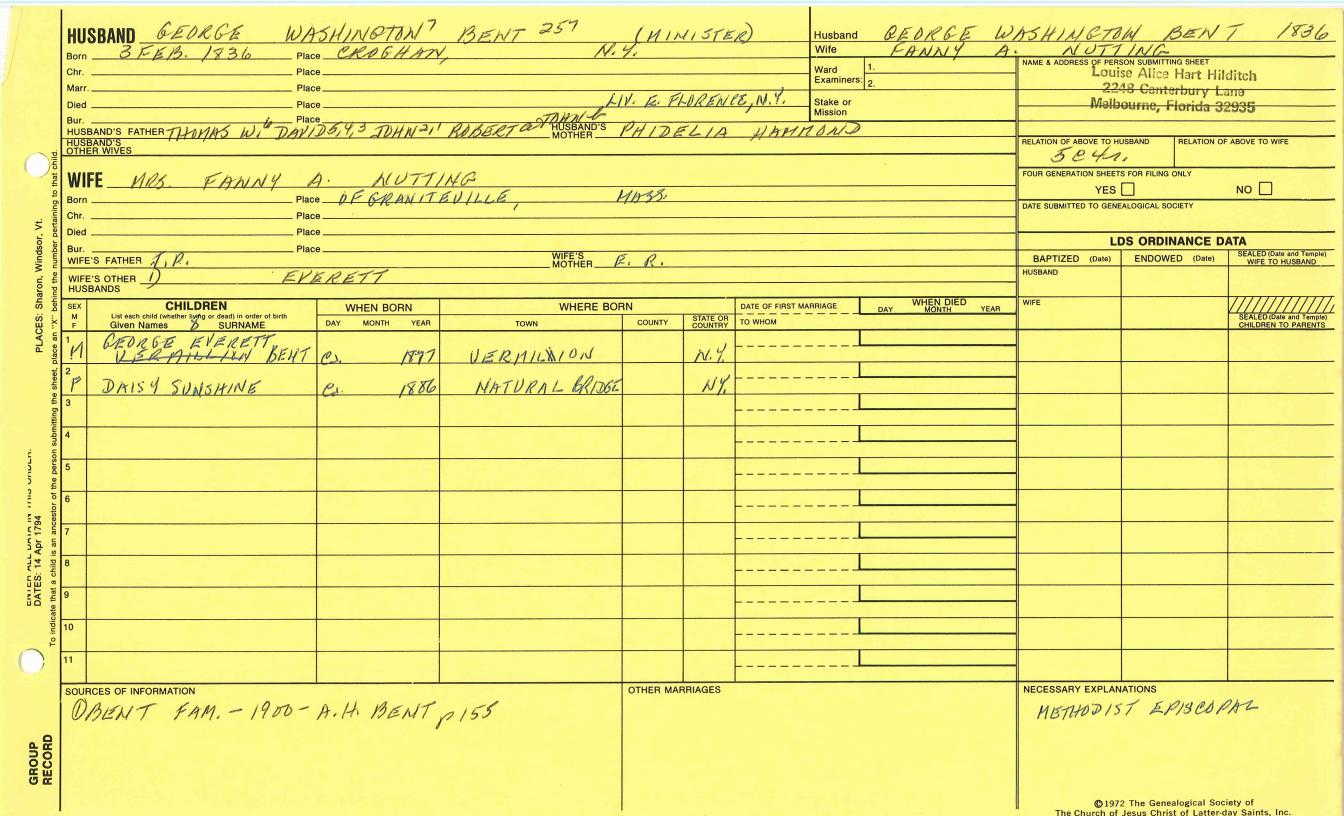 HUSBAND GEORGE WASHINGTON⁷ BENT 257 (MINISTER)
Born 3 FEB. 1836 Place CROGHAN, N.Y.
Chr. Place
Marr. Place
Died Place LIV. E. FLORENCE, N.Y.
Bur. Place
HUSBAND'S FATHER THOMAS W.⁶ DAVID5,4,3 JOHN2,1 ROBERT JOHN HUSBAND'S MOTHER PHIDELIA HAMMOND
HUSBAND'S OTHER WIVES
Husband GEORGE WASHINGTON BENT 1836
Wife FANNY A. NUTTING
Ward Examiners: 1.
2.
Stake or Mission
NAME & ADDRESS OF PERSON SUBMITTING SHEET
Louise Alice Hart Hilditch
2248 Canterbury Lane
Melbourne, Florida 32935
RELATION OF ABOVE TO HUSBAND RELATION OF ABOVE TO WIFE
5C4r.
FOUR GENERATION SHEETS FOR FILING ONLY
YES NO
DATE SUBMITTED TO GENEALOGICAL SOCIETY
WIFE MRS. FANNY A. NUTTING
Born Place OF GRANITEVILLE, MASS.
Chr. Place
Died Place
Bur. Place
WIFE'S FATHER J.P. WIFE'S MOTHER E. R.
WIFE'S OTHER HUSBANDS 1) EVERETT
LDS ORDINANCE DATA
BAPTIZED (Date) ENDOWED (Date) SEALED (Date and Temple) WIFE TO HUSBAND
HUSBAND
WIFE
SEALED (Date and Temple) CHILDREN TO PARENTS
SEX M F
CHILDREN
List each child (whether living or dead) in order of birth
Given Names SURNAME
WHEN BORN
DAY MONTH YEAR
WHERE BORN
TOWN COUNTY STATE OR COUNTRY
DATE OF FIRST MARRIAGE
TO WHOM
WHEN DIED
DAY MONTH YEAR
1 M GEORGE EVERETT
VERMILLION BENT c. 1877 VERMILLION N.Y.
2 F DAISY SUNSHINE c. 1886 NATURAL BRIDGE NY.
3
4
5
6
7
8
9
10
11
SOURCES OF INFORMATION
① BENT FAM. - 1900 - A.H. BENT p 155
OTHER MARRIAGES
NECESSARY EXPLANATIONS
METHODIST EPISCOPAL
©1972 The Genealogical Society of
The Church of Jesus Christ of Latter-day Saints, Inc.
ENTER ALL DATA IN THIS ORDER:
DATES: 14 Apr 1794
PLACES: Sharon, Windsor, Vt.
To indicate that a child is an ancestor of the person submitting the sheet, place an "X" behind the number pertaining to that child.
GROUP
RECORD